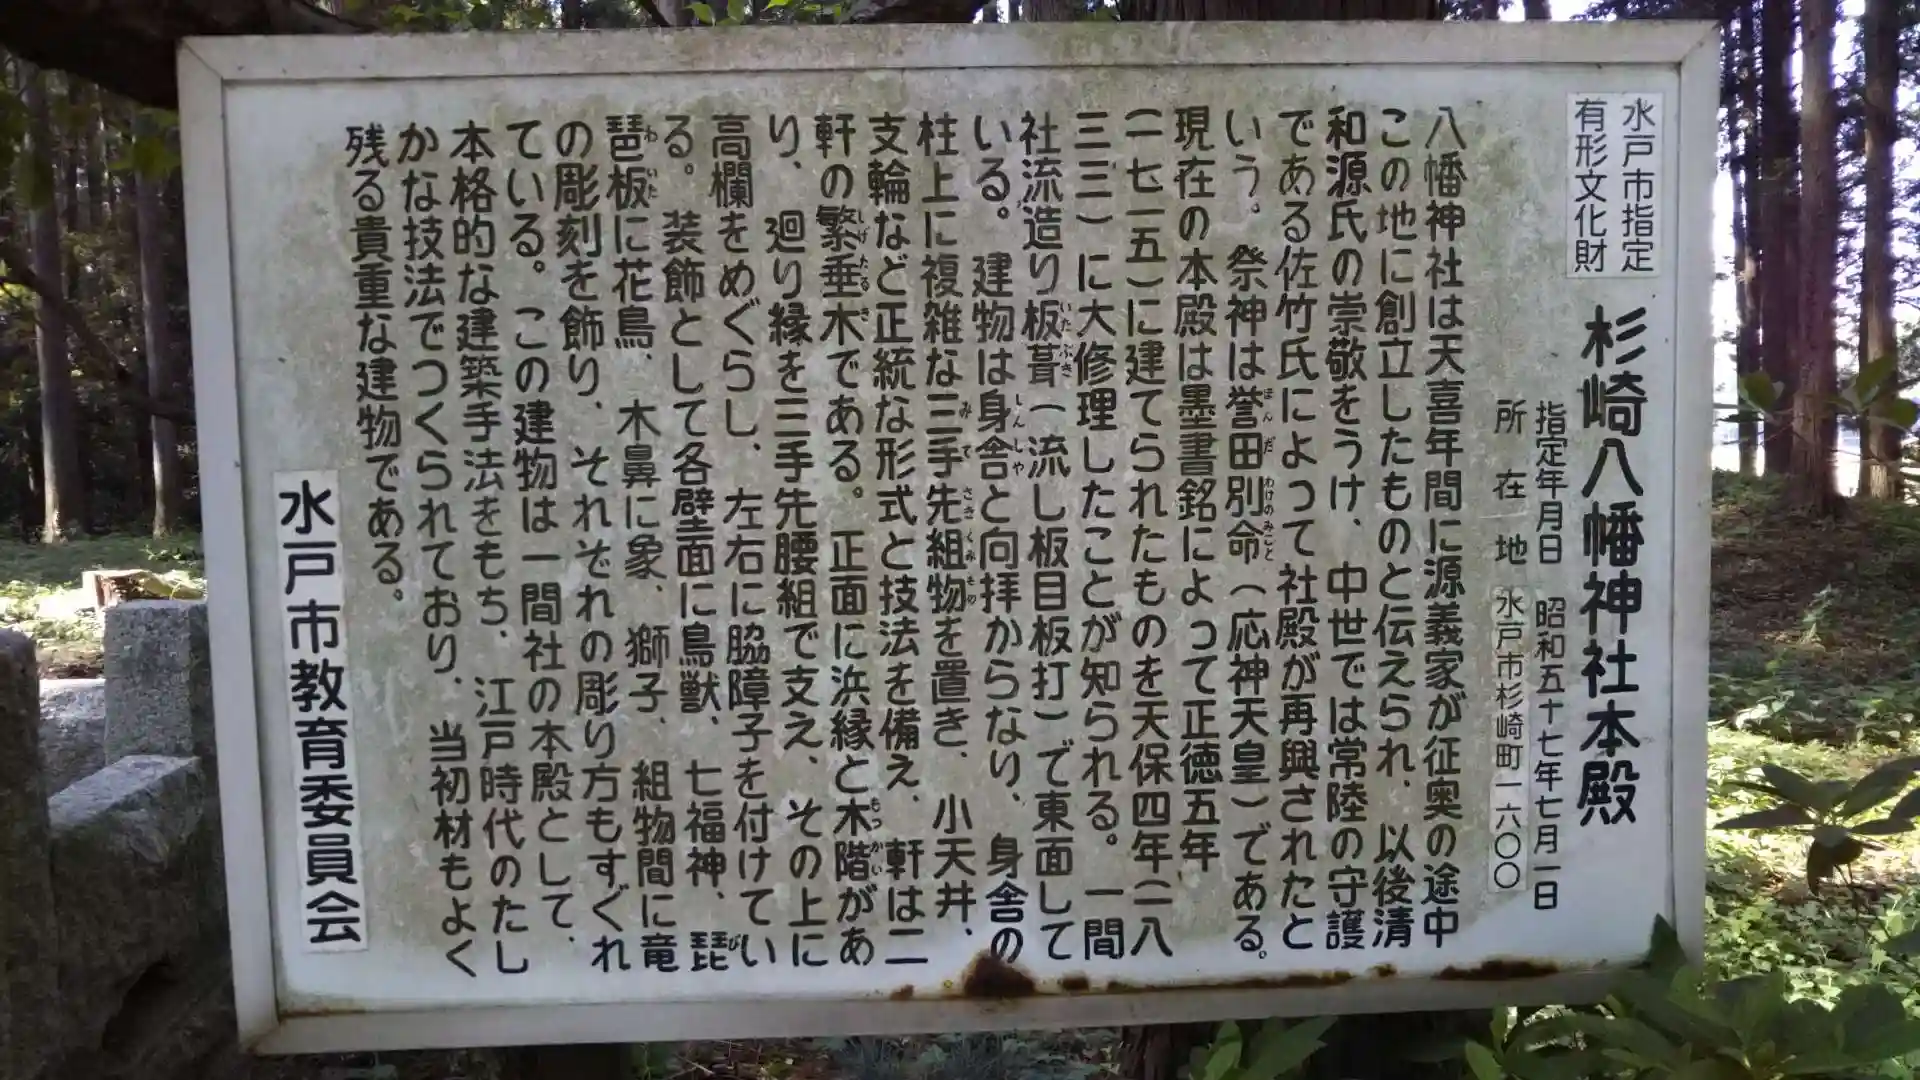 水戸市指定
有形文化財
杉崎八幡神社本殿
指定年月日 昭和五十七年七月一日
所在地 水戸市杉崎町一六〇〇
八幡神社は天喜年間に源義家が征奥の途中
この地に創立したものと伝えられ、以後清
和源氏の崇敬をうけ、中世では常陸の守護
である佐竹氏によって社殿が再興されたと
いう。祭神は誉田別命(応神天皇)である。
現在の本殿は墨書銘によって正徳五年
(一七一五)に建てられたものを天保四年(一八
三三)に大修理したことが知られる。一間
社流造り板葺(流し板目板打)で東面して
いる。建物は身舎と向拝からなり、身舎の
柱上に複雑な三手先組物を置き、小天井、
支輪など正統な形式と技法を備え、軒は二
軒の繁垂木である。正面に浜縁と木階があ
り、廻り縁を三手先腰組で支え、その上に
高欄をめぐらし、左右に脇障子を付けてい
る。装飾として各壁面に鳥獣、七福神、琵
琶板に花鳥、木鼻に象、獅子、組物間に竜
の彫刻を飾り、それぞれの彫り方もすぐれ
ている。この建物は一間社の本殿として、
本格的な建築手法をもち、江戸時代のたし
かな技法でつくられており、当初材もよく
残る貴重な建物である。
水戸市教育委員会